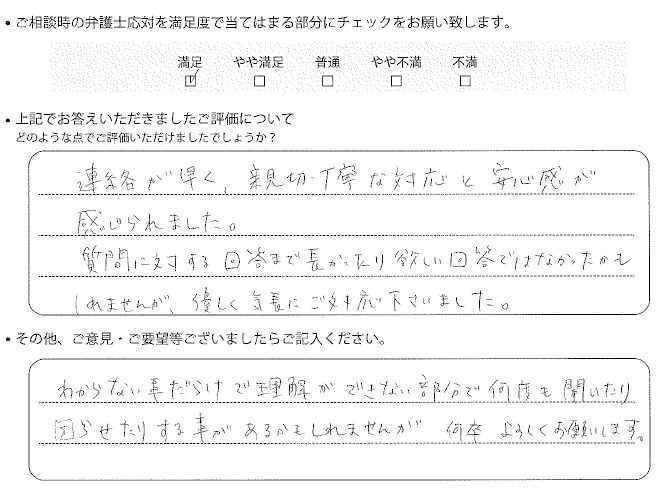 • ご相談時の弁護士応対を満足度で当てはまる部分にチェックをお願い致します。
満足 やや満足 普通 やや不満 不満
☑ □ □ □ □
• 上記でお答えいただきましたご評価について
どのような点でご評価いただけましたでしょうか？
連絡が早く、親切・丁寧な対応と安心感が
感じられました。
質問に対する回答まで長かったり欲しい回答ではなかったかも
しれませんが、優しく気長にご対応下さいました。
• その他、ご意見・ご要望等ございましたらご記入ください。
わからない事だらけで理解ができない部分で何度も聞いたり
困らせたりする事があるかもしれませんが 何卒 よろしくお願いします。